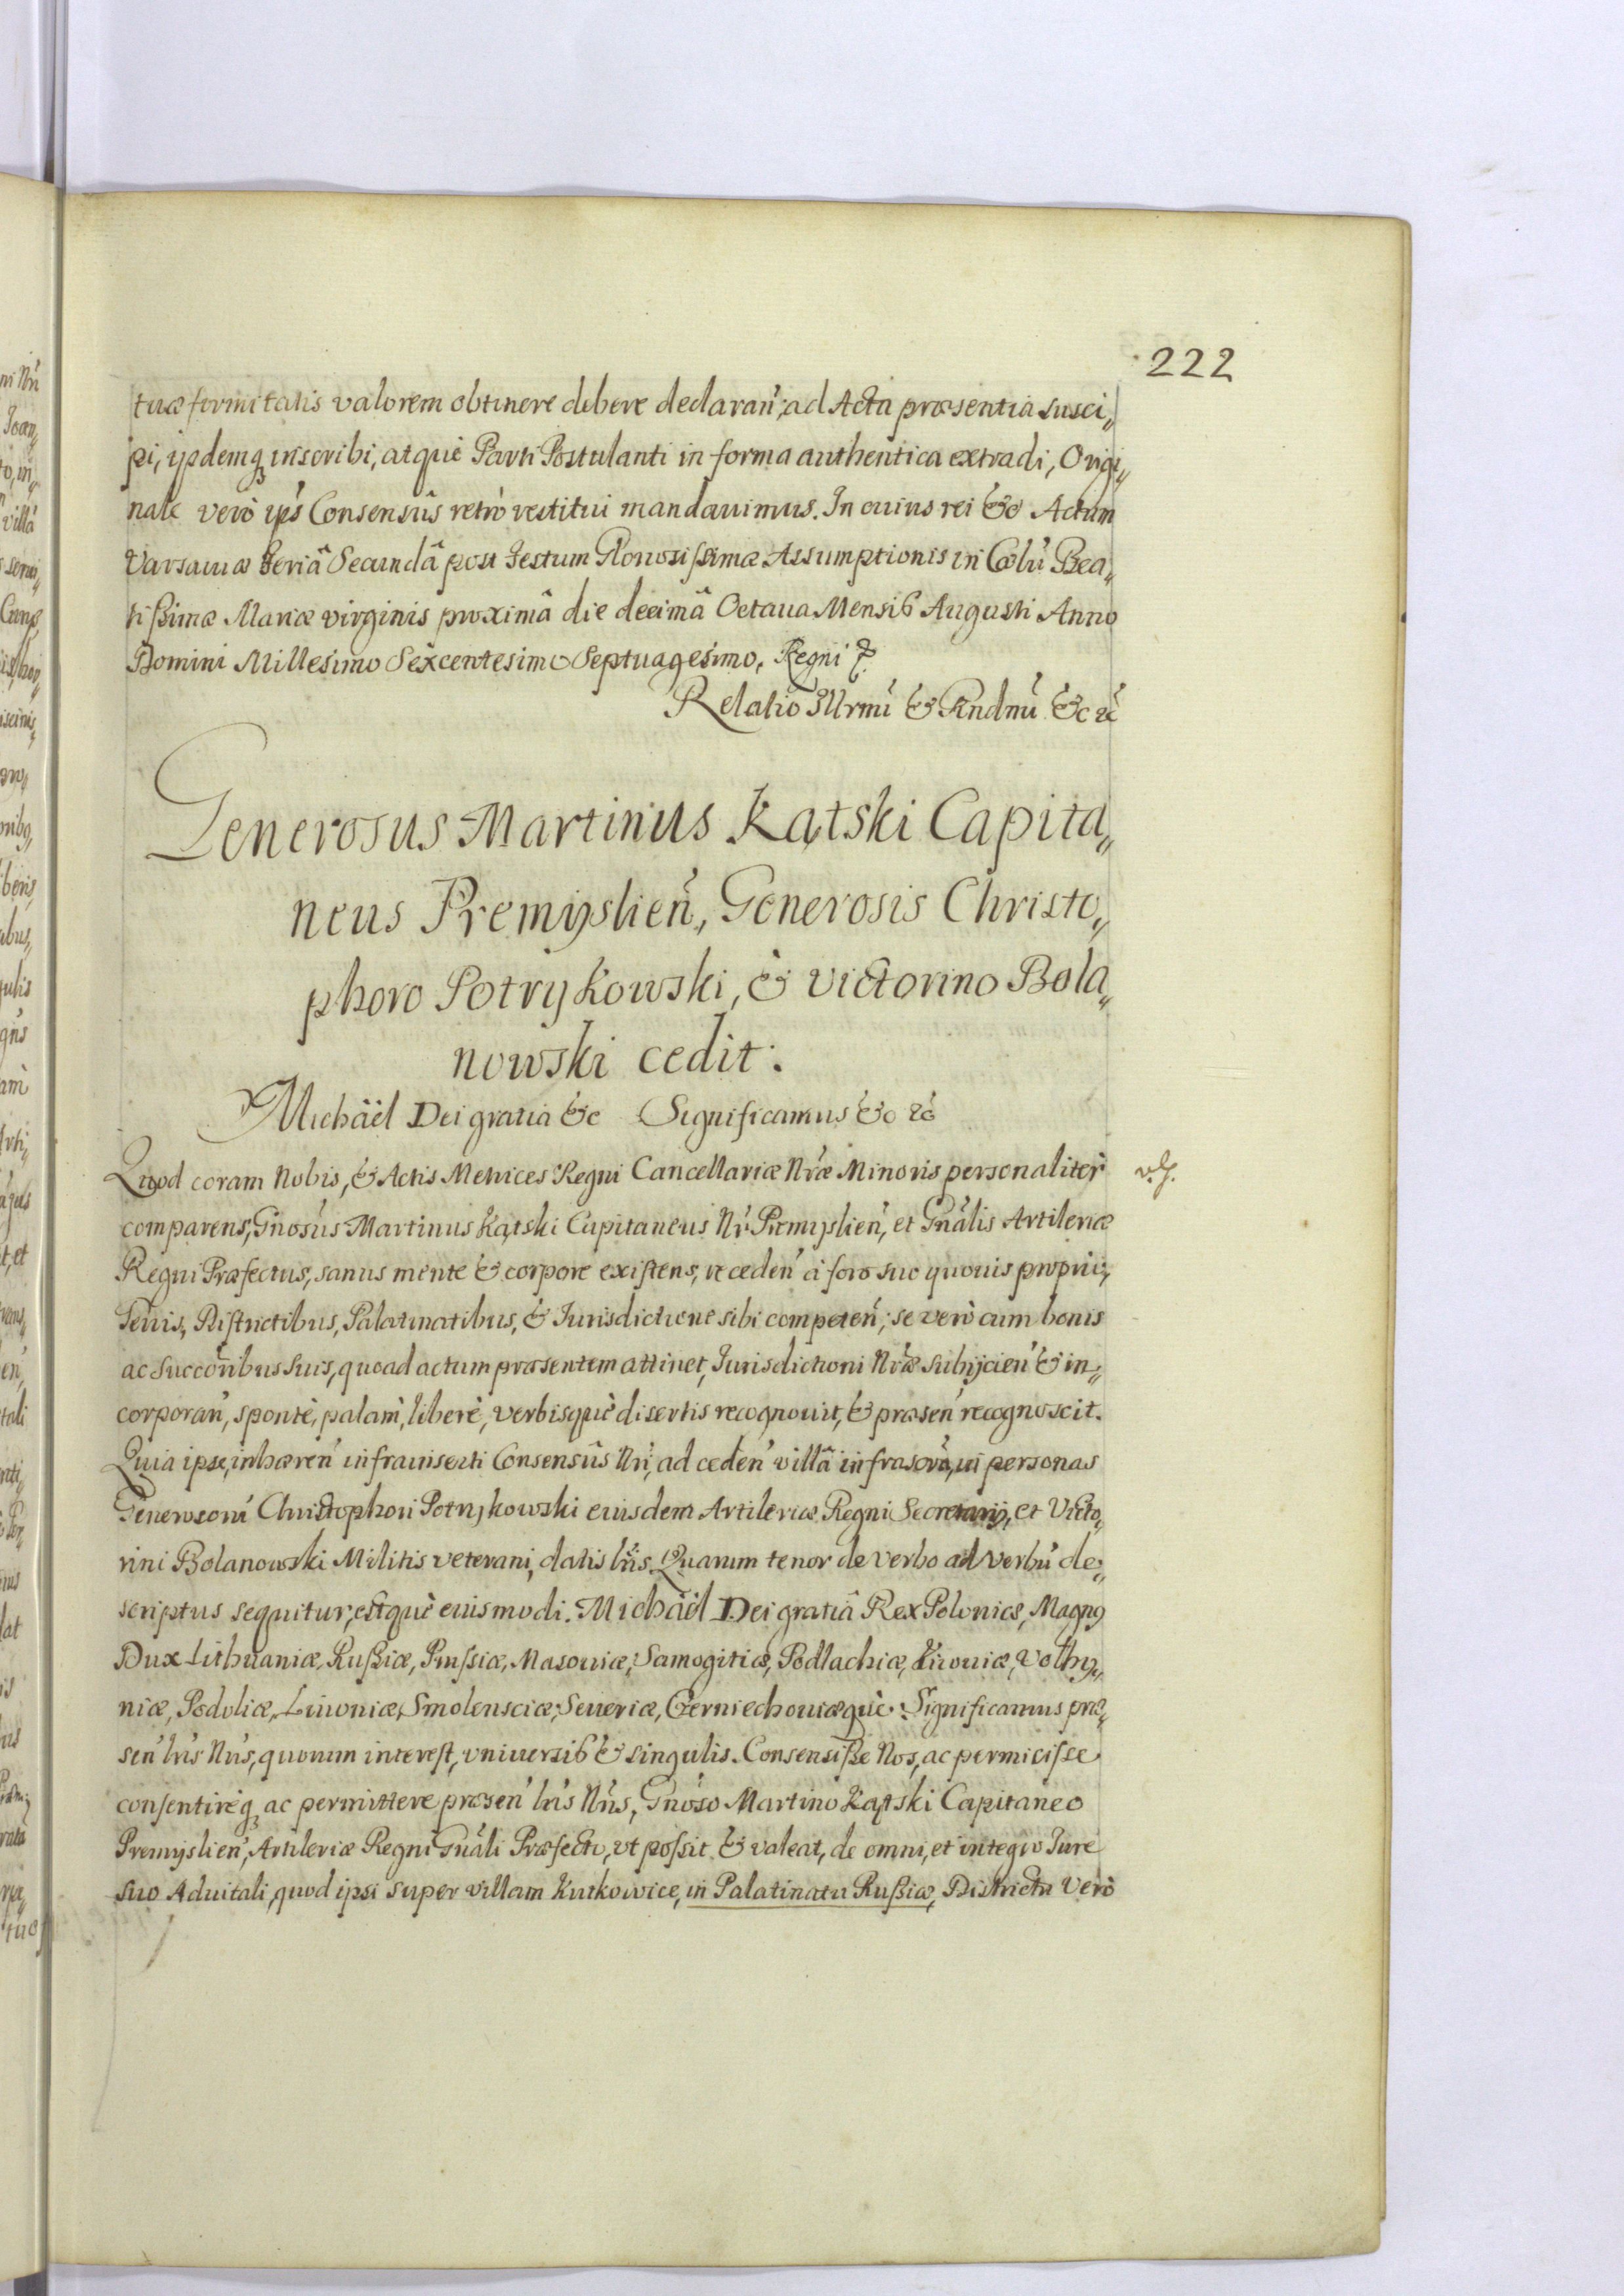 222
tuæ firmitatis valorem obtinere debere declaran̄, ad Acta præsentia susci„
pi, ijsdemq; inscribi, atquè Parti Postulanti in forma authentica extradi, Origi„
nale verò ip̄s Consensûs retrò restitui mandauimus. In cuius rei &c Actum
Varsauiæ Feriâ Secundâ post Festum Gloriosissimæ Assumptionis in Cœlū Bea„
tissimæ Mariæ virginis proximâ die decimâ Octaua Mensis Augusti Anno
Domini Millesimo Sexcentesimo Septuagesimo, Regni &.
Relatio Illrmi & Rndmi &c &c
Generosus Martinus Kątski Capita„
neus Premyslien̄, Generosis Christo„
phoro Potrykowski, & Victorino Bola„
nowski cedit.
Michäel Dei gratia &c Significamus &c &c
Quod coram Nobis, & Actis Metrices Regni Cancellariæ Nr̄æ Minoris personaliter
comparens, Gn̄osus Martinus Kątski Capitaneus Nr̄ Premyslien̄, et Gn̄alis Artileriæ
Regni Præfectus, sanus mente & corpore existens, receden̄ à foro suo quouis proprio,
Terris, Districtibus, Palatinatibus, & Iurisdictione sibi competen̄; se verò cum bonis
ac succōribus suis, quoad actum præsentem attinet, Iurisdictioni Nr̄æ subijcien̄ & in„
corporan̄, spontè, palam, liberè, verbisquè disertis recognouit, & præsen̄ recognoscit.
Quia ipse, inhæren̄ infrainserti Consensûs Nr̄i, ad ceden̄ villâ infrascrā, in personas
Generosorū Christophori Potrykowski eiusdem Artileriæ Regni Secretarij, et Victo„
rini Bolanowski Militis veterani, datis lr̄is. Quarum tenor de verbo ad verbū de„
scriptus sequitur, estquè eiusmodi. Michäel Dei gratiâ Rex Poloniæ, Magnꝰ
Dux Lithuaniæ, Russiæ, Prussiæ, Masouiæ, Samogitiæ, Podlachiæ, Kiiouiæ, Volhy„
niæ, Podoliæ, Liuoniæ, Smolensciæ, Seueriæ, Czerniechouiæquè. Significamus præ„
sen̄ lr̄is Nr̄is, quorum interest, vniuersis & singulis. Consensisse Nos, ac permisisse
consentireq; ac permittere præsen̄ lr̄is Nr̄is, Gn̄oso Martino Kątski Capitaneo
Premyslien̄, Artileriæ Regni Gn̄ali Præfecto, vt possit & valeat, de omni, et integro Iure
suo Aduitali, quod ipsi super villam Kutkowice, in Palatinatu Russiæ, Districtu verò